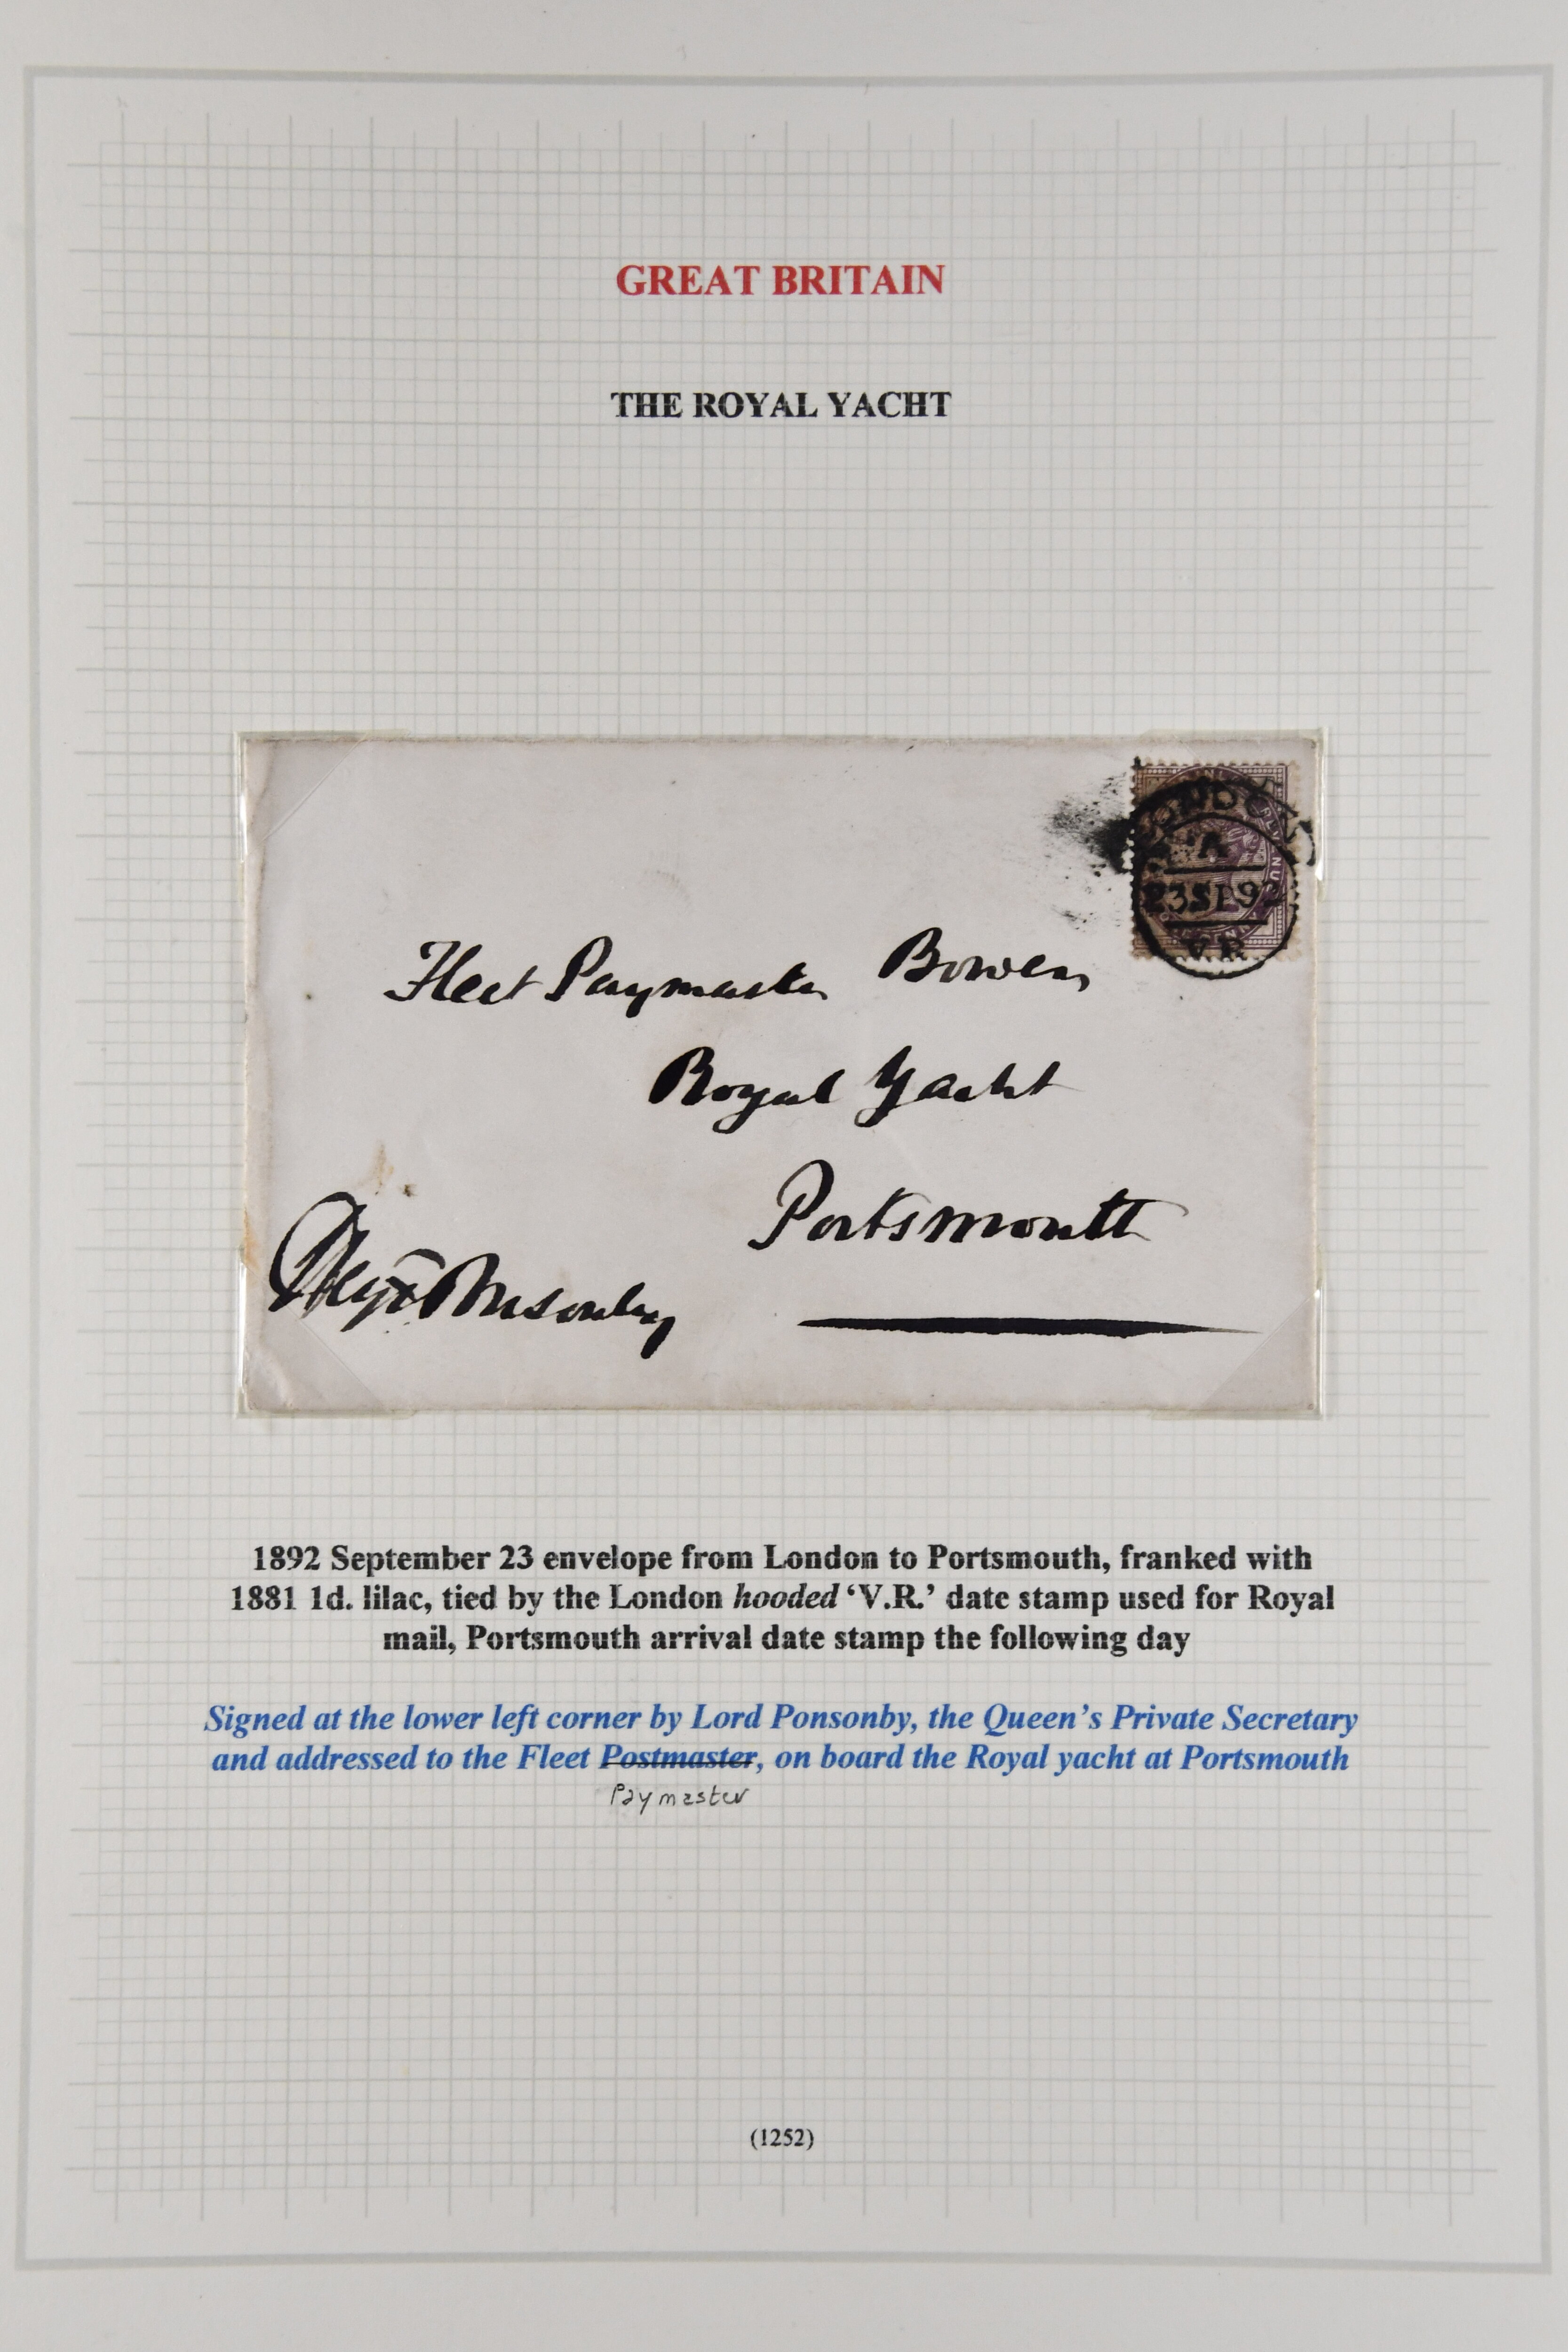 GREAT BRITAIN
THE ROYAL YACHT
LONDON
A
23 SP 92
V.R.
Fleet Paymaster Bowen
Royal Yacht
Portsmouth
Ponsonby
1892 September 23 envelope from London to Portsmouth, franked with
1881 1d. lilac, tied by the London hooded ‘V.R.’ date stamp used for Royal
mail, Portsmouth arrival date stamp the following day
Signed at the lower left corner by Lord Ponsonby, the Queen’s Private Secretary
and addressed to the Fleet Postmaster, on board the Royal yacht at Portsmouth
Paymaster
(1252)